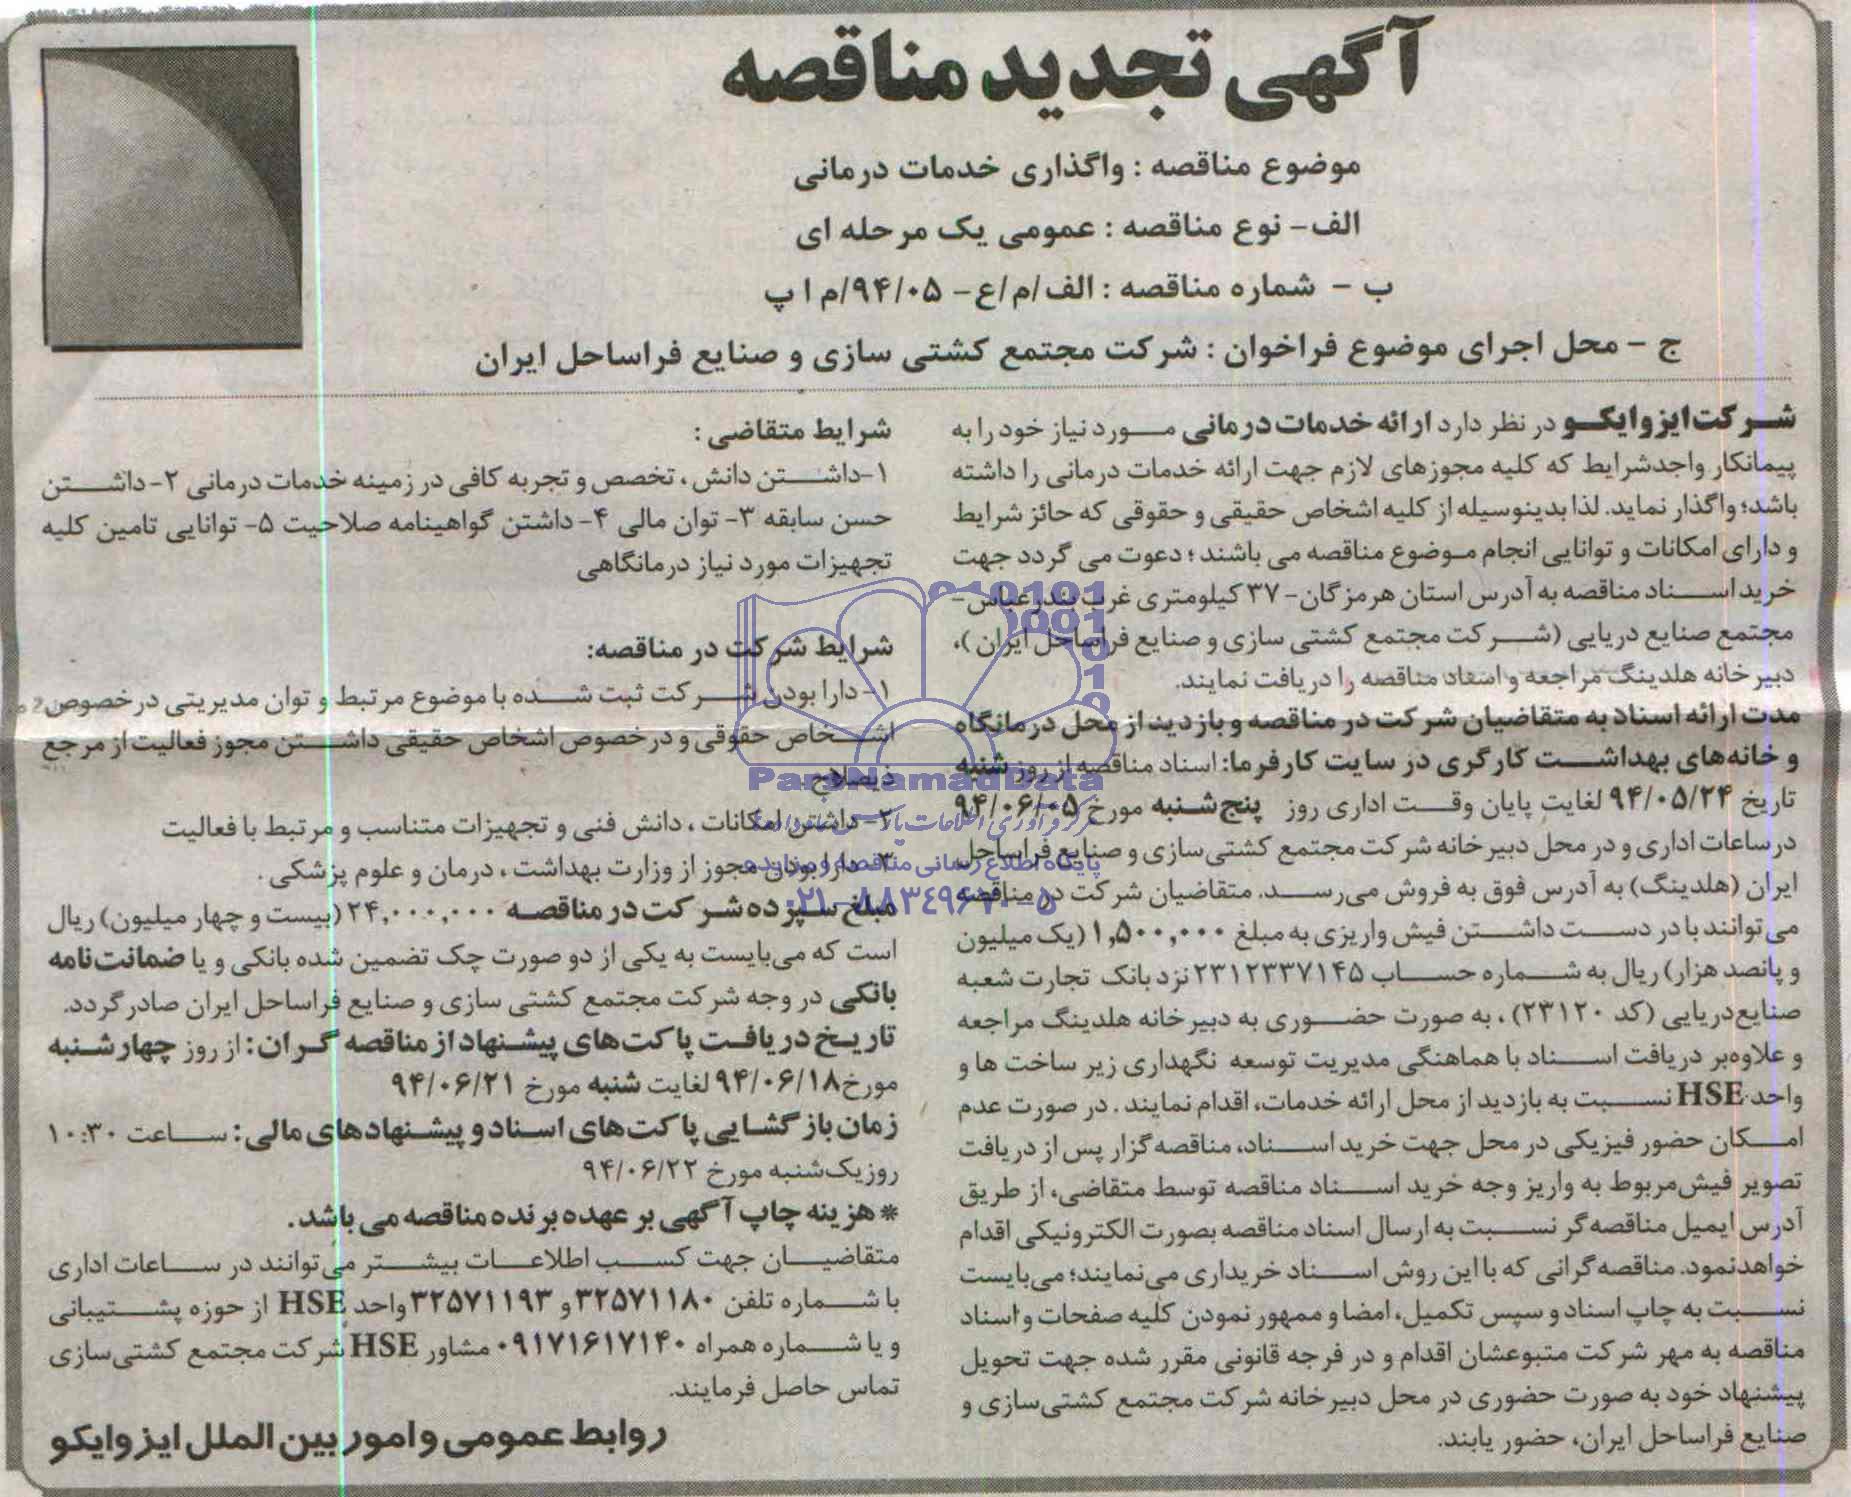 آگهی تجدید مناقصه
موضوع مناقصه : واگذاری خدمات درمانی
الف- نوع مناقصه : عمومی یک مرحله ای
ب - شماره مناقصه : الف/م/ع- ۹۴/۰۵/م ا پ
ج - محل اجرای موضوع فراخوان : شرکت مجتمع کشتی سازی و صنایع فراساحل ایران
شرکت ایزوایکو در نظر دارد ارائه خدمات درمانی مورد نیاز خود را به
پیمانکار واجدشرایط که کلیه مجوزهای لازم جهت ارائه خدمات درمانی را داشته
باشد؛ واگذار نماید. لذا بدینوسیله از کلیه اشخاص حقیقی و حقوقی که حائز شرایط
و دارای امکانات و توانایی انجام موضوع مناقصه می باشند ؛ دعوت می گردد جهت
خرید اسناد مناقصه به آدرس استان هرمزگان- ۳۷ کیلومتری غرب بندرعباس-
مجتمع صنایع دریایی (شرکت مجتمع کشتی سازی و صنایع فراساحل ایران )،
دبیرخانه هلدینگ مراجعه و اسناد مناقصه را دریافت نمایند.
مدت ارائه اسناد به متقاضیان شرکت در مناقصه و بازدید از محل درمانگاه
و خانه‌های بهداشت کارگری در سایت کارفرما: اسناد مناقصه از روز شنبه
تاریخ ۹۴/۰۵/۲۴ لغایت پایان وقت اداری روز پنج‌شنبه مورخ ۹۴/۰۶/۰۵
در ساعات اداری و در محل دبیرخانه شرکت مجتمع کشتی‌سازی و صنایع فراساحل
ایران (هلدینگ) به آدرس فوق به فروش می‌رسد. متقاضیان شرکت در مناقصه
می‌توانند با در دست داشتن فیش واریزی به مبلغ ۱,۵۰۰,۰۰۰ (یک میلیون
و پانصد هزار) ریال به شماره حساب ۲۳۱۲۳۳۷۱۴۵ نزد بانک تجارت شعبه
صنایع‌دریایی (کد ۲۳۱۲۰) ، به صورت حضوری به دبیرخانه هلدینگ مراجعه
و علاوه‌بر دریافت اسناد با هماهنگی مدیریت توسعه نگهداری زیر ساخت ها و
واحد HSE نسبت به بازدید از محل ارائه خدمات، اقدام نمایند . در صورت عدم
امکان حضور فیزیکی در محل جهت خرید اسناد، مناقصه‌گزار پس از دریافت
تصویر فیش‌مربوط به واریز وجه خرید اسناد مناقصه توسط متقاضی، از طریق
آدرس ایمیل مناقصه‌گر نسبت به ارسال اسناد مناقصه بصورت الکترونیکی اقدام
خواهدنمود. مناقصه‌گرانی که با این روش اسناد خریداری می‌نمایند؛ می‌بایست
نسبت به چاپ اسناد و سپس تکمیل، امضا و ممهور نمودن کلیه صفحات و اسناد
مناقصه به مهر شرکت متبوعشان اقدام و در فرجه قانونی مقرر شده جهت تحویل
پیشنهاد خود به صورت حضوری در محل دبیرخانه شرکت مجتمع کشتی‌سازی و
صنایع فراساحل ایران، حضور یابند.
شرایط متقاضی :
۱-داشتن دانش ، تخصص و تجربه کافی در زمینه خدمات درمانی ۲- داشتن
حسن سابقه ۳- توان مالی ۴- داشتن گواهینامه صلاحیت ۵- توانایی تامین کلیه
تجهیزات مورد نیاز درمانگاهی
شرایط شرکت در مناقصه:
۱- دارا بودن شرکت ثبت شده با موضوع مرتبط و توان مدیریتی در خصوص
اشخاص حقوقی و در خصوص اشخاص حقیقی داشتن مجوز فعالیت از مرجع
ذیصلاح
۲- داشتن امکانات ، دانش فنی و تجهیزات متناسب و مرتبط با فعالیت
۳- دارا بودن مجوز از وزارت بهداشت ، درمان و علوم پزشکی .
مبلغ سپرده شرکت در مناقصه ۲۴,۰۰۰,۰۰۰ (بیست و چهار میلیون) ریال
است که می‌بایست به یکی از دو صورت چک تضمین شده بانکی و یا ضمانت‌نامه
بانکی در وجه شرکت مجتمع کشتی سازی و صنایع فراساحل ایران صادر گردد.
تاریخ دریافت پاکت‌های پیشنهاد از مناقصه گران: از روز چهارشنبه
مورخ ۹۴/۰۶/۱۸ لغایت شنبه مورخ ۹۴/۰۶/۲۱
زمان بازگشایی پاکت‌های اسناد و پیشنهادهای مالی: ساعت ۱۰:۳۰
روز یک‌شنبه مورخ ۹۴/۰۶/۲۲
* هزینه چاپ آگهی بر عهده برنده مناقصه می باشد.
متقاضیان جهت کسب اطلاعات بیشتر می‌توانند در ساعات اداری
با شماره تلفن ۳۲۵۷۱۱۸۰ و ۳۲۵۷۱۱۹۳ واحد HSE از حوزه پشتیبانی
و یا شماره همراه ۰۹۱۷۱۶۱۷۱۴۰ مشاور HSE شرکت مجتمع کشتی‌سازی
تماس حاصل فرمایند.
روابط عمومی و امور بین الملل ایزوایکو
ParsNamadData
پایگاه اطلاع رسانی مناقصه و مزایده
۰۲۱-۸۸۳۴۹۶۷۰-۵